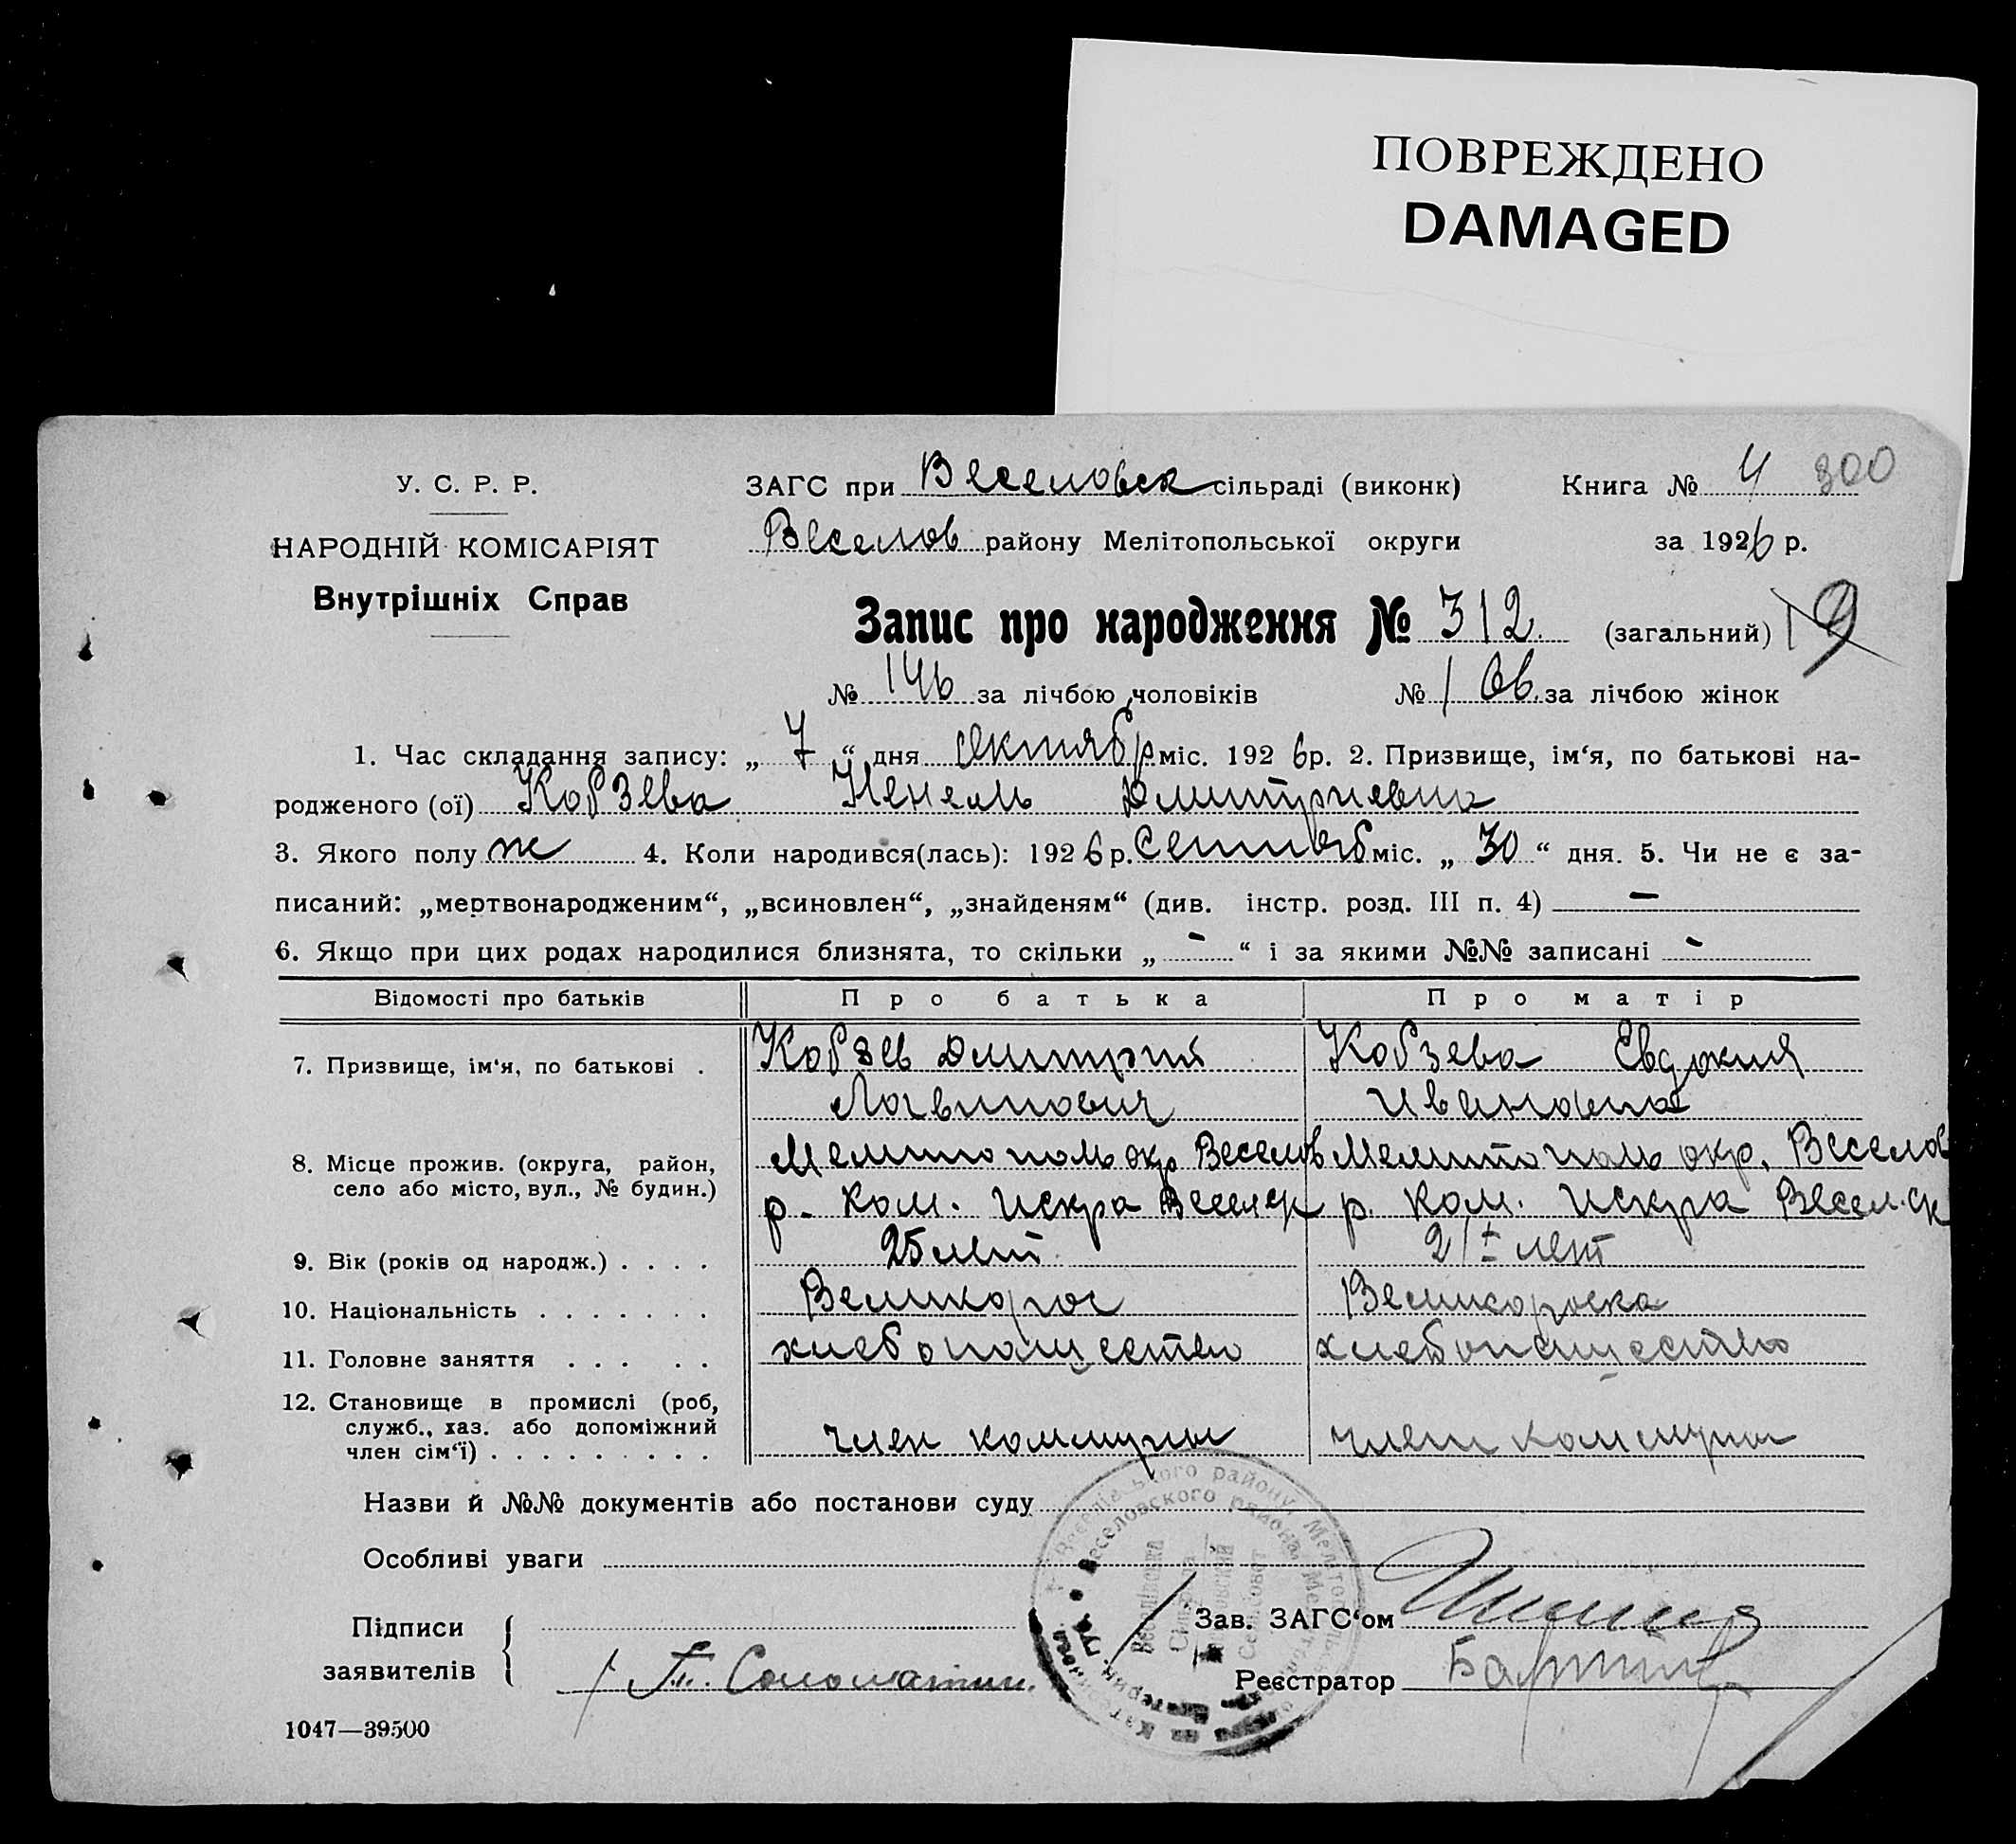 ПОВРЕЖДЕНО
DAMAGED
У. С. Р. Р.
НАРОДНІЙ КОМІСАРІЯТ
Внутрішніх Справ
ЗАГС при Веселовск сільраді (виконк)
Книга № 4 300
Веселов району Мелітопольської округи
за 1926 р.
Запис про народження № 312. (загальний) 19
№ 146 за лічбою чоловіків № 166. за лічбою жінок
1. Час складання запису: „ 7 “ дня октябр міс. 1926 р. 2. Призвище, ім‘я, по батькові на-
родженого (ої) Кобзева Нинель Дмитриевна
3. Якого полу ж 4. Коли народився(лась): 1926 р. Сентяб міс. „ 30 “ дня. 5. Чи не є за-
писаний: „мертвонародженим“, „всиновлен“, „знайденям“ (див. інстр. розд. III п. 4) —
6. Якщо при цих родах народилися близнята, то скільки „ - “ і за якими №№ записані -
Відомості про батьків Про батька Про матір
7. Призвище, ім‘я, по батькові . Кобзев Дмитрий Кобзева Евдокия
Логвинович Ивановна
8. Місце прожив. (округа, район, Мелитополь окр Веселов Мелитополь окр. Веселов
село або місто, вул., № будин.) р. ком. Искра Веселск р. ком. Искра Весел.ск
9. Вік (років од народж.) . . . . 25 лет 21 лет
10. Національність . . . . . . . Великорос Великороска
11. Головне заняття . . . . . хлебопашество хлебопашество
12. Становище в промислі (роб,
служб., хаз. або допоміжний
член сім‘ї) . . . . . . . . . член коммуны член коммуны
Назви й №№ документів або постанови суду
Особливі уваги
Підписи
заявителів
Соломатин
Зав. ЗАГС‘ом
Реєстратор
Веселовского района
1047—39500